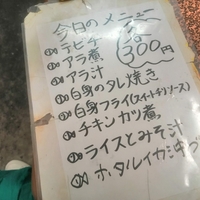 今日のメニュー
各300円
① テビチ
① アラ煮
① アラ汁
① 白身のタレ焼き
① 白身フライ(スイートチリソース)
① チキンカツ煮
① ライスとみそ汁
① ホタルイカ沖づ